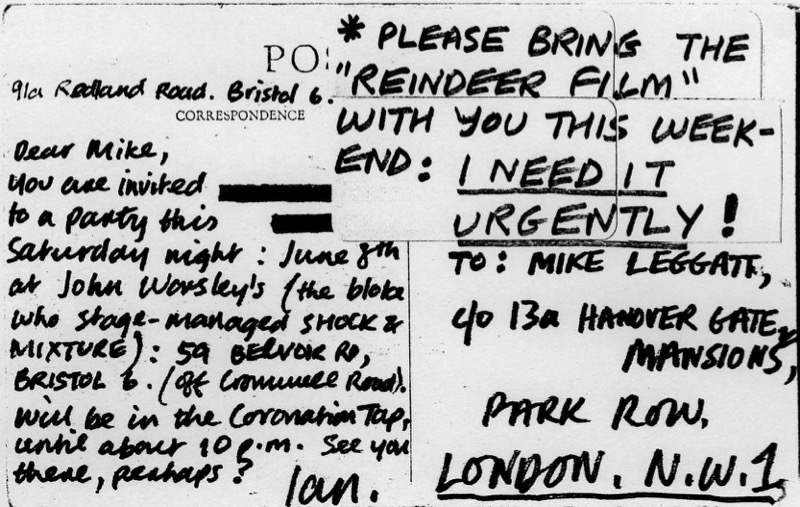 PO
91a Redland Road. Bristol 6.
CORRESPONDENCE
Dear Mike,
You are invited
to a party this
Saturday night: June 8th
at John Worsley's (the bloke
who stage-managed SHOCK &
MIXTURE): 59 BELVOIR RD,
BRISTOL 6. (off Cromwell Road).
Will be in the Coronation Tap,
until about 10 p.m. See you
there, perhaps?
Ian.
* PLEASE BRING THE
"REINDEER FILM"
WITH YOU THIS WEEK-
END: I NEED IT
URGENTLY!
TO: MIKE LEGGATT,
c/o 13a HANOVER GATE,
MANSIONS,
PARK ROW,
LONDON. N.W.1